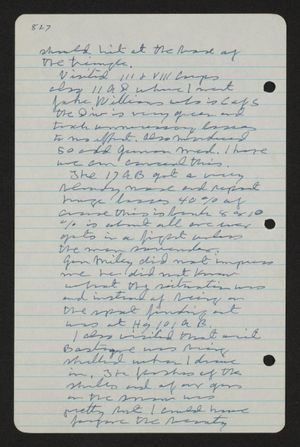 827
should hit at the base of
the triangle.
Visited III & VIII Corps
also 11 AD where I met
the Div is very green and
took unnecessary losses
to no effect. also murdered
50 odd German med. I hope
we can conceal this.
The 17 AB got a very
bloody nose and report
huge losses 40% of
course this is bunk 8 or 10
% is about all one ever
gets in a fight unless
the men surrender.
Gen Miley did not impress
me he did not know
what the situation was
and instead of being on
the spot finding out
was at Hq 101 AB.
I also visited that unit
Bastogne was being
shelled when I drove
in. The flashes of the
shells and of our guns
on the snow was
pretty but I could have
forgone the beauty